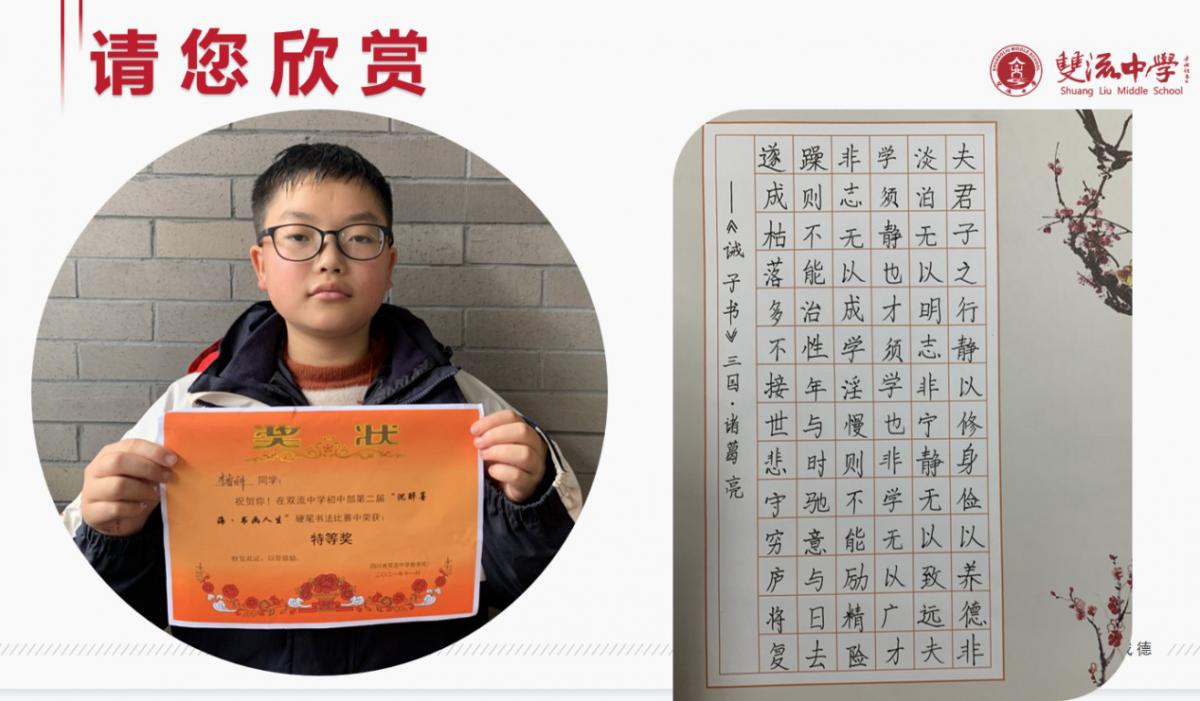 请您欣赏
雙流中學
Shuang Liu Middle School
奖 状
同学:
祝贺你!在双流中学初中部第二届“沉醉墨
海·书画人生”硬笔书法比赛中荣获:
特等奖
特发此证,以资鼓励。
四川省双流中学教务处
二〇二一年十一月
夫君子之行静以修身俭以养德非
淡泊无以明志非宁静无以致远夫
学须静也才须学也非学无以广才
非志无以成学淫慢则不能励精险
躁则不能治性年与时驰意与日去
遂成枯落多不接世悲守穷庐将复
——《诫子书》三国·诸葛亮
德